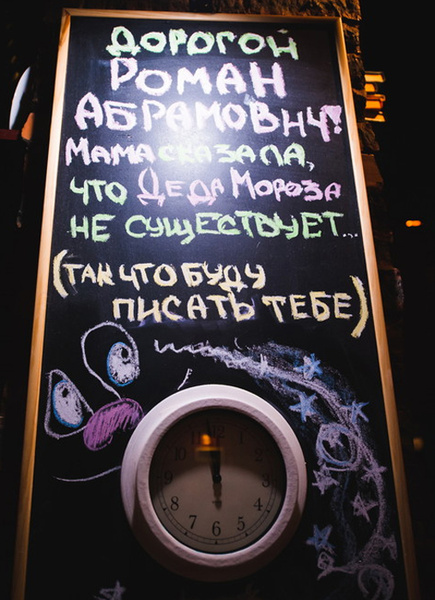 ДОРОГОЙ
РОМАН
АБРАМОВИЧ!
МАМА СКАЗАЛА,
ЧТО ДЕДА МОРОЗА
НЕ СУЩЕСТВУЕТ...
(ТАК ЧТО БУДУ
ПИСАТЬ ТЕБЕ)
11 12 1
10 2
9 3
8 4
7 6 5